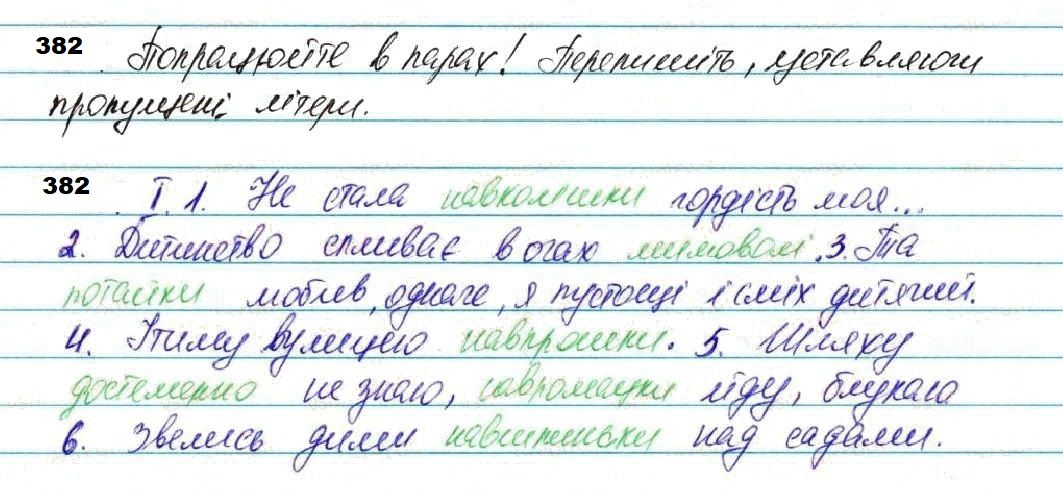 382 Попрацюйте в парах! Перепишіть, уставляючи
пропущені літери.
382 І. 1. Не стала навколішки гордість моя...
2. Дитинство спливає в очах мимоволі. 3. Та
потайки любив, одначе, я пустощі і сміх дитячий.
4. Ітиму вулицею навпрошки. 5. Шляху
достеменно не знаю, навромацки йду, блукаю
6. Звелись дими навшпиньки над садами.